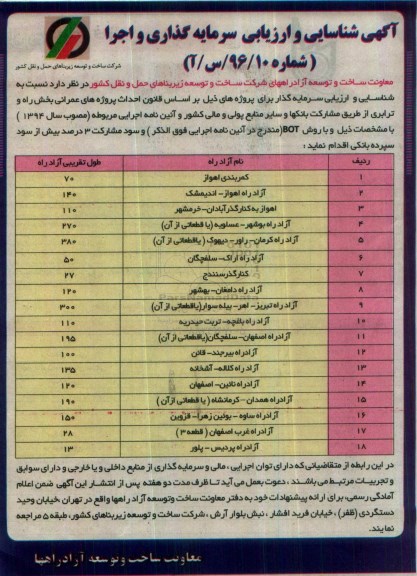 آگهی شناسایی و ارزیابی سرمایه گذاری و اجرا
( شماره ۹۶/۱۰/س/آ)
شرکت ساخت و توسعه زیربناهای حمل و نقل کشور
معاونت ساخت و توسعه آزادراههای شرکت ساخت و توسعه زیربناهای حمل و نقل کشور در نظر دارد نسبت به
شناسایی و ارزیابی سرمایه گذار برای پروژه های ذیل بر اساس قانون احداث پروژه های عمرانی بخش راه و
ترابری از طریق مشارکت بانکها و سایر منابع پولی و مالی کشور و آئین نامه اجرایی مربوطه (مصوب سال ۱۳۹۴ )
با مشخصات ذیل و با روش BOT(مندرج در آئین نامه اجرایی فوق الذکر ) و سود مشارکت ۳ درصد بیش از سود
سپرده بانکی اقدام نماید :
ردیف نام آزاد راه طول تقریبی آزاد راه
۱ کمربندی اهواز ۷۰
۲ آزاد راه اهواز- اندیمشک ۱۴۰
۳ اهواز به کنارگذرآبادان-خرمشهر ۱۱۰
۴ آزاد راه بوشهر- عسلویه (یا قطعاتی از آن) ۲۷۰
۵ آزاد راه کرمان- راور- دیهوک ( یاقطعاتی از آن) ۳۸۰
۶ آزاد راه اراک- سلفچگان ۵۰
۷ کنارگذرسنندج ۲۷
۸ آزاد راه دامغان- بهشهر ۱۲۰
۹ آزاد راه تبریز- اهر- بیله سوار(یاقطعاتی از آن) ۳۰۰
۱۰ آزاد راه باغچه- تربت حیدریه ۱۱۰
۱۱ آزادراه اصفهان- سلفچگان(یاقطعاتی از آن) ۱۹۵
۱۲ آزادراه بیرجند- قائن ۱۰۰
۱۳ آزاد راه کلاله- آشخانه ۱۳۵
۱۴ آزادراه نائین- اصفهان ۱۲۰
۱۵ آزادراه همدان- کرمانشاه ( یا قطعاتی از آن ) ۱۹۰
۱۶ آزادراه ساوه - بوئین زهرا- قزوین ۱۵۰
۱۷ آزادراه غرب اصفهان ( قطعه ۳ ) ۲۸
۱۸ آزادراه پردیس - پلور ۱۳
در این رابطه از متقاضیانی که دارای توان اجرایی ، مالی و سرمایه گذاری از منابع داخلی و یا خارجی و دارای سوابق
و تجربیات مرتبط می باشند ، دعوت بعمل می آید تا ظرف مدت دو هفته پس از انتشار این آگهی ضمن اعلام
آمادگی رسمی، برای ارائه پیشنهادات خود به دفتر معاونت ساخت وتوسعه آزاد راهها واقع در تهران ،خیابان وحید
دستگردی (ظفر) ، خیابان فرید افشار ، نبش بلوار آرش ، شرکت ساخت و توسعه زیربناهای کشور، طبقه ۵ مراجعه
نمایند.
معاونت ساخت وتوسعه آزادراهها